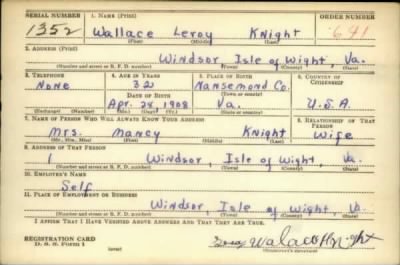 SERIAL NUMBER 1. NAME (Print) ORDER NUMBER
1352 Wallace Leroy Knight 641
(First) (Middle) (Last)
2. ADDRESS (Print)
Windsor, Isle of Wight, Va.
(Number and street or R. F. D. number) (Town) (County) (State)
3. TELEPHONE 4. AGE IN YEARS 5. PLACE OF BIRTH 6. COUNTRY OF CITIZENSHIP
None 32 Nansemond Co.
DATE OF BIRTH (Town or county)
Apr. 28, 1908 Va. U.S.A.
(Exchange) (Number) (Mo.) (Day) (Yr.) (State or country)
7. NAME OF PERSON WHO WILL ALWAYS KNOW YOUR ADDRESS 8. RELATIONSHIP OF THAT PERSON
Mrs. Nancy Knight Wife
(Mr., Mrs., Miss) (First) (Middle) (Last)
9. ADDRESS OF THAT PERSON
1 Windsor, Isle of Wight, Va.
(Number and street or R. F. D. number) (Town) (County) (State)
10. EMPLOYER'S NAME
Self
11. PLACE OF EMPLOYMENT OR BUSINESS
Windsor, Isle of Wight, Va.
(Number and street or R. F. D. number) (Town) (County) (State)
I AFFIRM THAT I HAVE VERIFIED ABOVE ANSWERS AND THAT THEY ARE TRUE.
REGISTRATION CARD
D. S. S. Form 1 (over) Knight